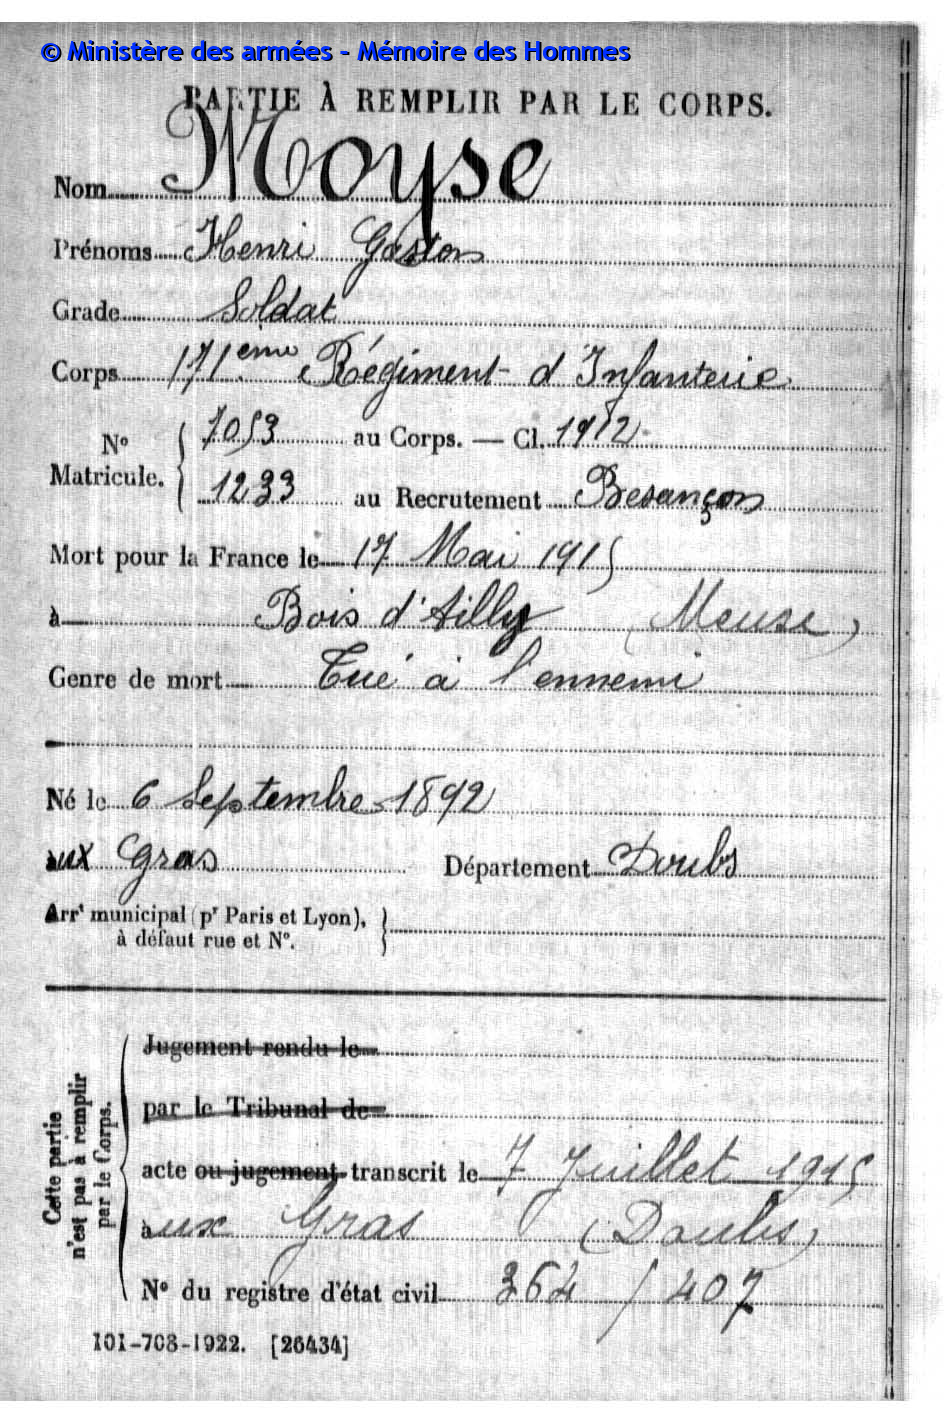 © Ministère des armées - Mémoire des Hommes
PARTIE À REMPLIR PAR LE CORPS.
Nom Moyse
Prénoms Henri Gaston
Grade Soldat
Corps 171ème Régiment d'Infanterie
N° Matricule. { 7053 au Corps. — Cl. 1912
1233 au Recrutement Besançon
Mort pour la France le 17 Mai 1915
à Bois d'Ailly (Meuse)
Genre de mort Tué à l'ennemi
Né le 6 Septembre 1892
aux Gras Département Doubs
Arrt municipal (pr Paris et Lyon), }
à défaut rue et N°.
Cette partie n'est pas à remplir par le Corps.
Jugement rendu le
par le Tribunal de
acte ou jugement transcrit le 7 Juillet 1915
aux Gras (Doubs)
N° du registre d'état civil 364 / 407
101-708-1922. [26434]